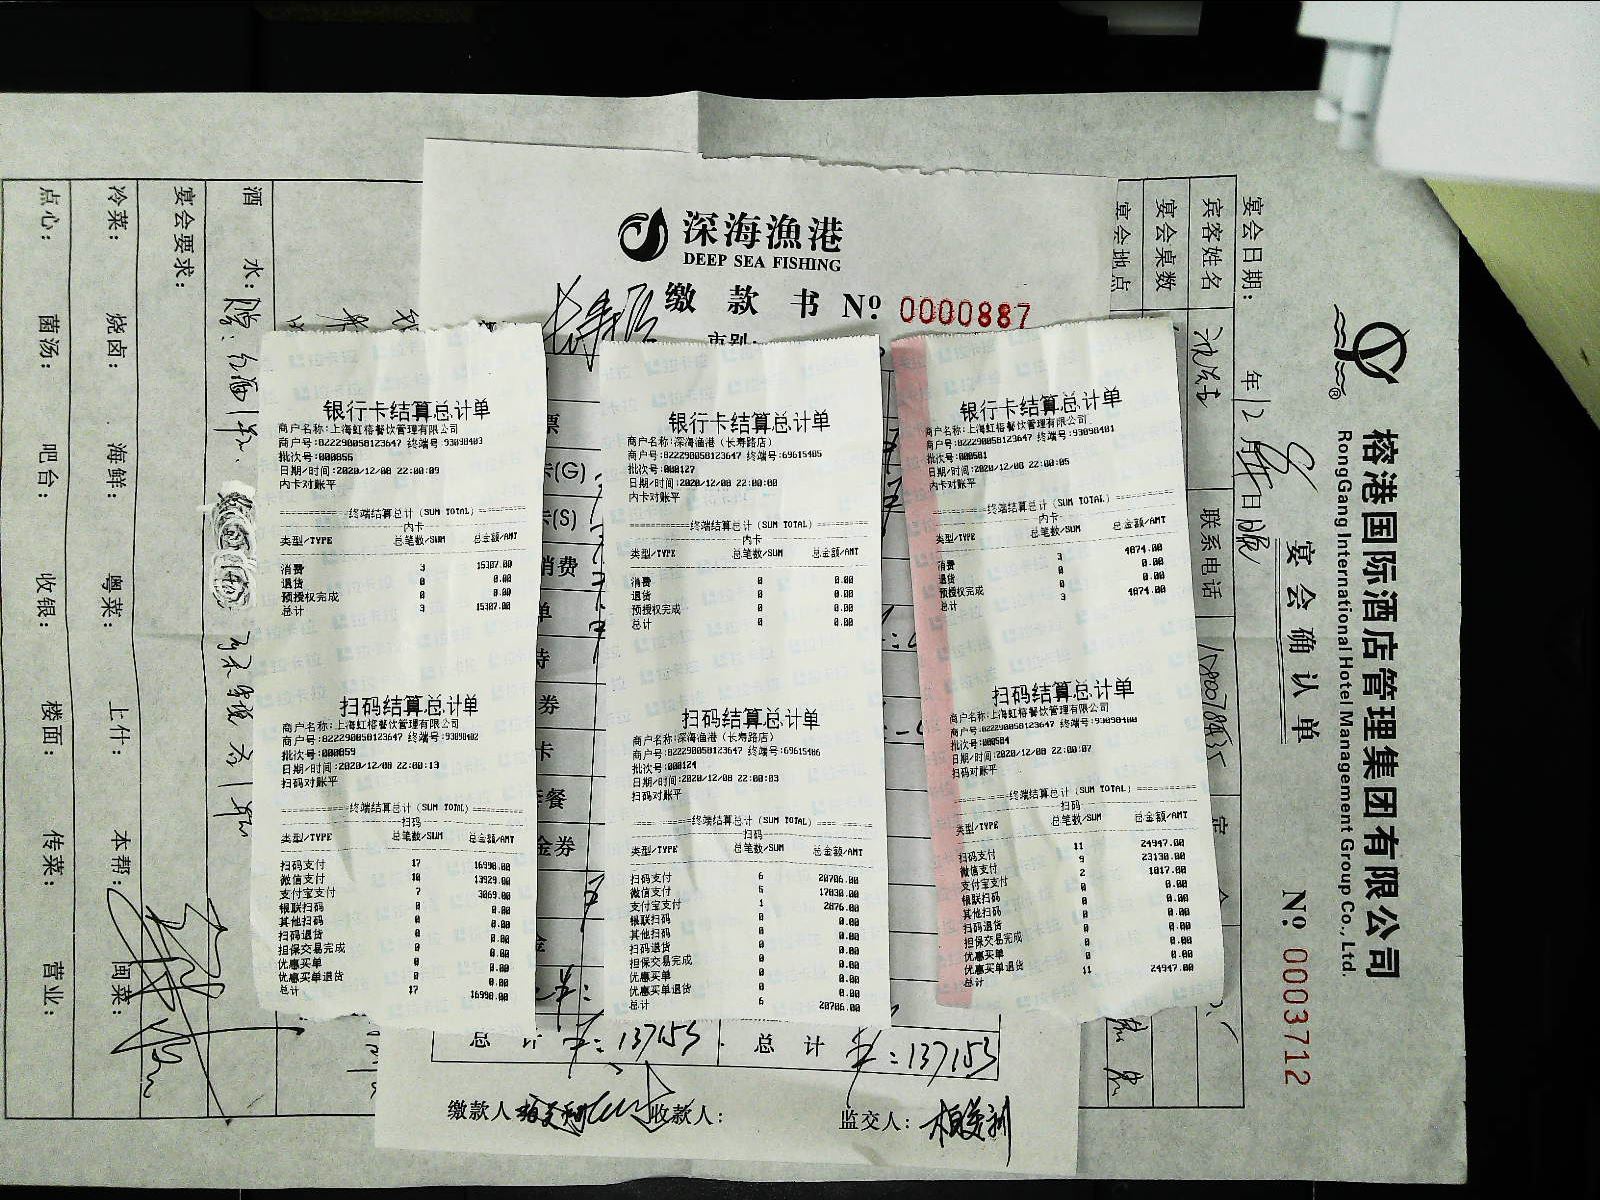 深海漁港
DEEP SEA FISHING
缴款书 № 0000887
长寿店
市别:
银行卡结算总计单
商户名称:上海虹榕餐饮管理有限公司
商户号:822290058123647 终端号:93090403
批次号:000856
日期/时间:2020/12/08 22:00:09
内卡对账平
终端结算总计(SUM TOTAL)
内卡
类型/TYPE 总笔数/SUM 总金额/AMT
消费 3 15307.00
退货 0 0.00
预授权完成 0 0.00
总计 3 15307.00
扫码结算总计单
商户名称:上海虹榕餐饮管理有限公司
商户号:822290058123647 终端号:93090402
批次号:000859
日期/时间:2020/12/08 22:00:13
扫码对账平
终端结算总计(SUM TOTAL)
扫码
类型/TYPE 总笔数/SUM 总金额/AMT
扫码支付 17 16998.00
微信支付 10 13929.00
支付宝支付 7 3069.00
银联扫码 0 0.00
其他扫码 0 0.00
扫码退货 0 0.00
担保交易完成 0 0.00
优惠买单 0 0.00
优惠买单退货 0 0.00
总计 17 16998.00
银行卡结算总计单
商户名称:深海渔港(长寿路店)
商户号:822290058123647 终端号:69615405
批次号:000127
日期/时间:2020/12/08 22:00:00
内卡对账平
终端结算总计(SUM TOTAL)
内卡
类型/TYPE 总笔数/SUM 总金额/AMT
消费 0 0.00
退货 0 0.00
预授权完成 0 0.00
总计 0 0.00
扫码结算总计单
商户名称:深海渔港(长寿路店)
商户号:822290058123647 终端号:69615406
批次号:000124
日期/时间:2020/12/08 22:00:03
扫码对账平
终端结算总计(SUM TOTAL)
扫码
类型/TYPE 总笔数/SUM 总金额/AMT
扫码支付 6 20706.00
微信支付 5 17830.00
支付宝支付 1 2876.00
银联扫码 0 0.00
其他扫码 0 0.00
扫码退货 0 0.00
担保交易完成 0 0.00
优惠买单 0 0.00
优惠买单退货 0 0.00
总计 6 20706.00
银行卡结算总计单
商户名称:上海虹榕餐饮管理有限公司
商户号:822290058123647 终端号:93090401
批次号:000581
日期/时间:2020/12/08 22:00:05
内卡对账平
终端结算总计(SUM TOTAL)
内卡
类型/TYPE 总笔数/SUM 总金额/AMT
消费 3 4074.00
退货 0 0.00
预授权完成 0 0.00
总计 3 4074.00
扫码结算总计单
商户名称:上海虹榕餐饮管理有限公司
商户号:822290058123647 终端号:93090400
批次号:000584
日期/时间:2020/12/08 22:00:07
扫码对账平
终端结算总计(SUM TOTAL)
扫码
类型/TYPE 总笔数/SUM 总金额/AMT
扫码支付 11 24947.00
微信支付 9 23130.00
支付宝支付 2 1817.00
银联扫码 0 0.00
其他扫码 0 0.00
扫码退货 0 0.00
担保交易完成 0 0.00
优惠买单 0 0.00
优惠买单退货 0 0.00
总计 11 24947.00
票
卡(G)
卡(S)
消费
单
待
券
卡
餐
金券
金
总计 ¥:137153 总计 ¥:137153
缴款人 收款人: 监交人:
榕港国际酒店管理集团有限公司
RongGang International Hotel Management Group Co., Ltd.
宴会确认单 № 0003712
宴会日期: 年12月8日晚
宾客姓名 联系电话
宴会桌数
宴会地点
酒水:
宴会要求:
冷菜: 烧卤: 海鲜: 粤菜: 上什: 本帮: 闽菜:
点心: 菌汤: 吧台: 收银: 楼面: 传菜: 营业: